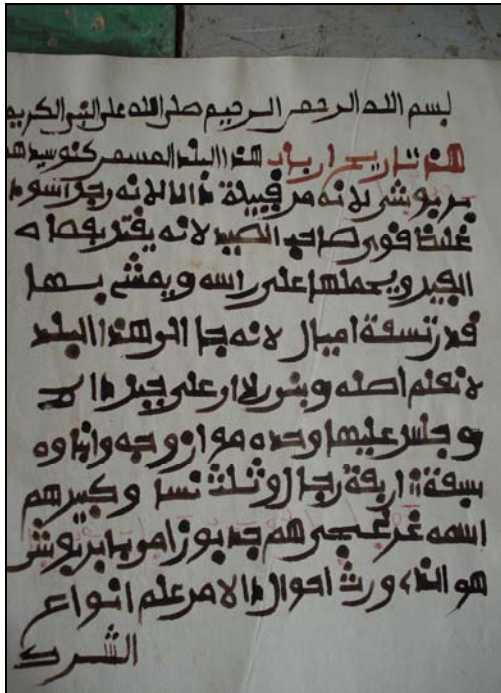 بسم الله الرحمن الرحيم صلى الله على النبي الكريم
هذا تاريخ ارباب هذا البلد المسمى كنو سيدهم
بربوشى لانه من قبيلة دالا لانه رجل اسود
غليظ قوى صاحب الصيد لانه يقتل بعصاه
الفيل ويحملها على راسه ويمشى بها
قدر تسعة اميال لانه جا الى هذا البلد
لا نعلم اصله وبنى دار على جبل دالا
وجلس عليها وحده مع ازوجه واولاده
سبعة اربعة رجال وثلث نسا وكبيرهم
اسمه غرغجى هم جد بربوشى
هو الذى ورث احوال دالا من علم انواع
الشرك